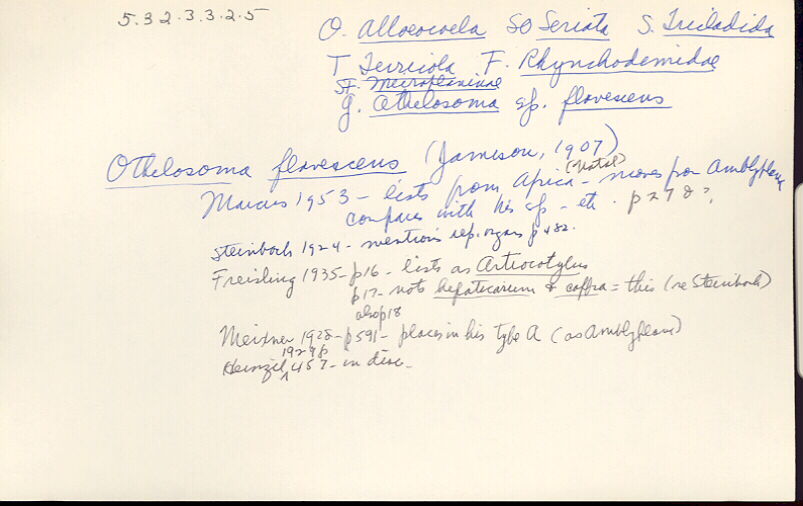 5.32.3.3.2.5
O. Alloeocoela SO Seriata S. Tricladida
T Terricola F. Rhynchodemidae
SF. Microplaninae
g. Othelosoma sp. flavescens
Othelosoma flavescens (Jameson, 1907)
Marcus 1953 - lists from Africa (Natal) - moves from Amblyplana
compares with his sp - etc. p 278?
Steinbock 1924 - mentions rep. organs p 482.
Freisling 1935 - p16 - lists as Artiocotylus
p17 - nots hepaticarum & caffra = this (re Steinbock)
also p18
Meixner 1928 - p591 - places in his type A (as Amblyplana)
Heinzel 1929 p 457 - in disc.